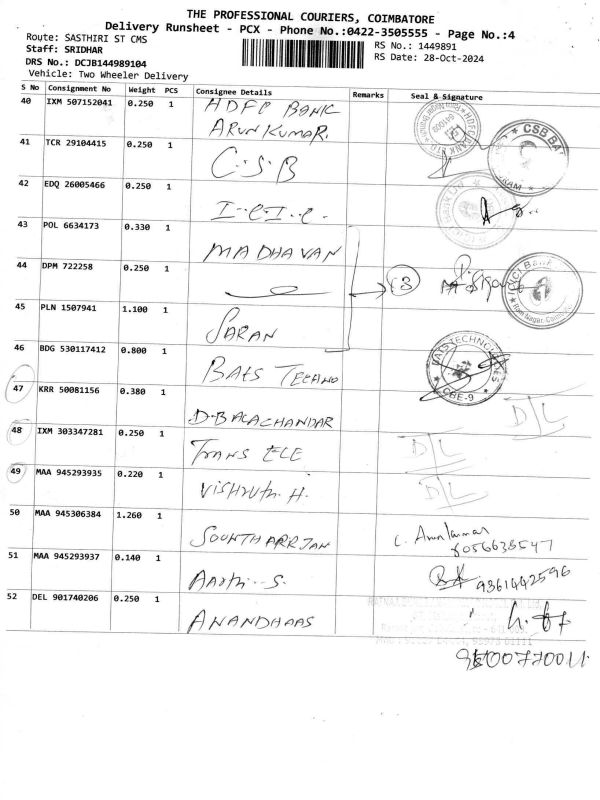 THE PROFESSIONAL COURIERS, COIMBATORE
Delivery Runsheet - PCX - Phone No.:0422-3505555 - Page No.:4
Route: SASTHIRI ST CMS
RS No.: 1449891
Staff: SRIDHAR
RS Date: 28-Oct-2024
DRS No.: DCJB144989104
Vehicle: Two Wheeler Delivery
S No Consignment No Weight PCS Consignee Details Remarks Seal & Signature
40 IXM 507152041 0.250 1 HDFC BANK
ARUNKUMAR.
41 TCR 29104415 0.250 1 C.S.B
CSB BA
42 EDQ 26005466 0.250 1 I.C.I.C.
43 POL 6634173 0.330 1 MADHAVAN
44 DPM 722258 0.250 1
(3)
ICICI Bank
Ram Nagar,
45 PLN 1507941 1.100 1 SARAN
46 BDG 530117412 0.800 1 BATS TECHNO
BATS TECHNOLOGIES
CBE-9
47 KRR 50081156 0.380 1 D.BALACHANDAR D/L
48 IXM 303347281 0.250 1 TRANS ELE D/L
49 MAA 945293935 0.220 1 Vishruth. H. D/L
50 MAA 945306384 1.260 1 SOUNTHARRJAN
C. Arunkumar
8056635547
51 MAA 945293937 0.140 1 Aarthi. S. 9361442596
52 DEL 901740206 0.250 1 ANANDHAAS